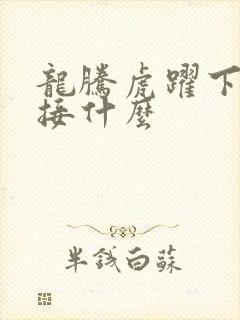 龍騰虎躍下
接什麼
半錢白蘇